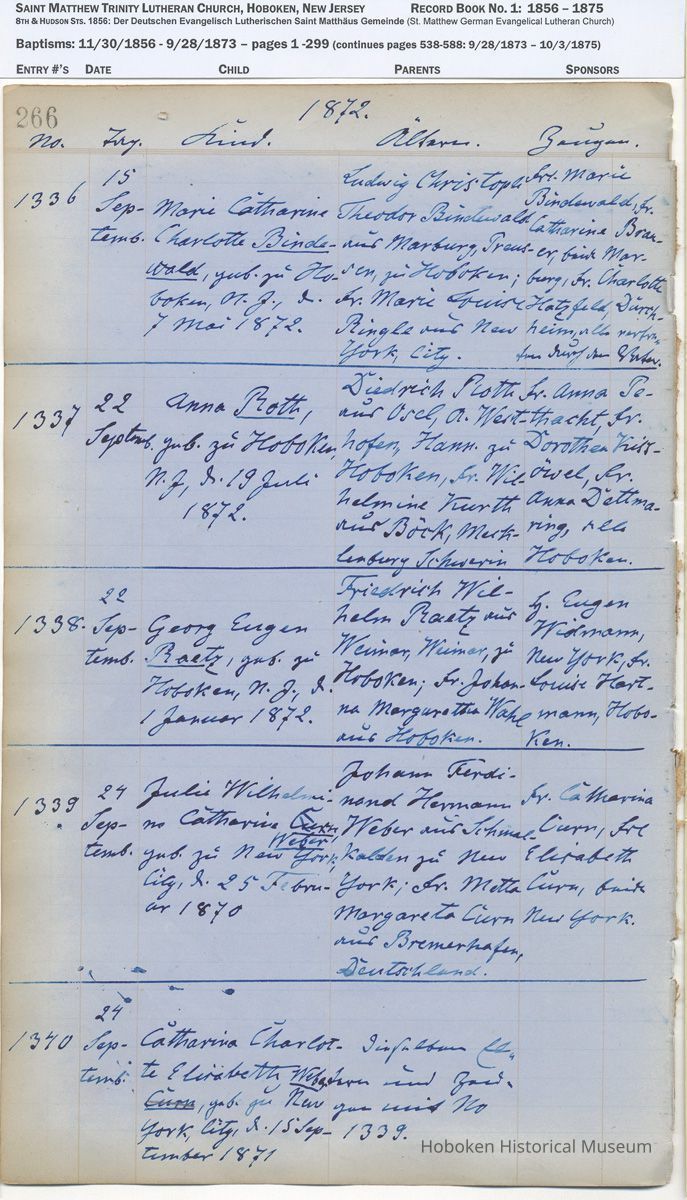 SAINT MATTHEW TRINITY LUTHERAN CHURCH, HOBOKEN, NEW JERSEY RECORD BOOK NO. 1: 1856 – 1875
8TH & HUDSON STS. 1856: Der Deutschen Evangelisch Lutherischen Saint Matthäus Gemeinde (St. Matthew German Evangelical Lutheran Church)
Baptisms: 11/30/1856 - 9/28/1873 – pages 1 -299 (continues pages 538-588: 9/28/1873 – 10/3/1875)
ENTRY #'S DATE CHILD PARENTS SPONSORS
266
1872.
No. Tag. Kind. Ältern. Zeugen.
1336
15
Sep-
temb.
Marie Catharine
Charlotte Binde-
wald, geb. zu Ho-
boken, N. J., d.
7 Mai 1872.
Ludwig Christoph
Theodor Bindewald
aus Marburg, Preus-
sen, zu Hoboken;
Fr. Marie Louise
Ringle aus New
York, City.
Fr. Marie
Bindewald, Fr.
Catharine
er, beide Mar-
burg, Fr. Charlotte
Hatzfeld, Dürk-
heim, alle vertre-
ten durch den Vater.
1337
22
Septemb.
Anna Roth,
geb. zu Hoboken,
N. J., d. 19 Juli
1872.
Diedrich Roth
aus Osel, A. West-
hofen, Hann. zu
Hoboken, Fr. Wil-
helmine Kurth
aus Böck, Meck-
lenburg Schwerin
Fr. Anna Pe-
thacht, Fr.
Dorothea
Fr.
Anna Dettma-
ring, alle
Hoboken.
1338.
22
Sep-
temb.
Georg Eugen
Raetz, geb. zu
Hoboken, N. J., d.
1 Januar 1872.
Friedrich Wil-
helm Raetz aus
Weimar, Weimar, zu
Hoboken; Fr. Johan-
na Margaretha Wahl
aus Hoboken.
H. Eugen
Widmann,
New York, Fr.
Louise Hart-
mann, Hobo-
ken.
1339
24
Sep-
temb.
Julie Wilhelmi-
ne Catharine Curn
Weber
geb. zu New York,
City, d. 25 Febru-
ar 1870
Johann Ferdi-
nand Hermann
Weber aus Schmal-
kalden zu New
York; Fr. Metta
Margareta Curn
aus Bremerhafen,
Deutschland.
Fr. Catharina
Curn, Frl
Elisabeth
Curn, beide
New York.
1340
24
Sep-
temb.
Catharina Charlot-
te Elisabeth Weber
Curn, geb. zu New
York, City, d. 15 Sep-
tember 1871
Dieselben El-
tern und Zeu-
gen mit No
1339.
Hoboken Historical Museum